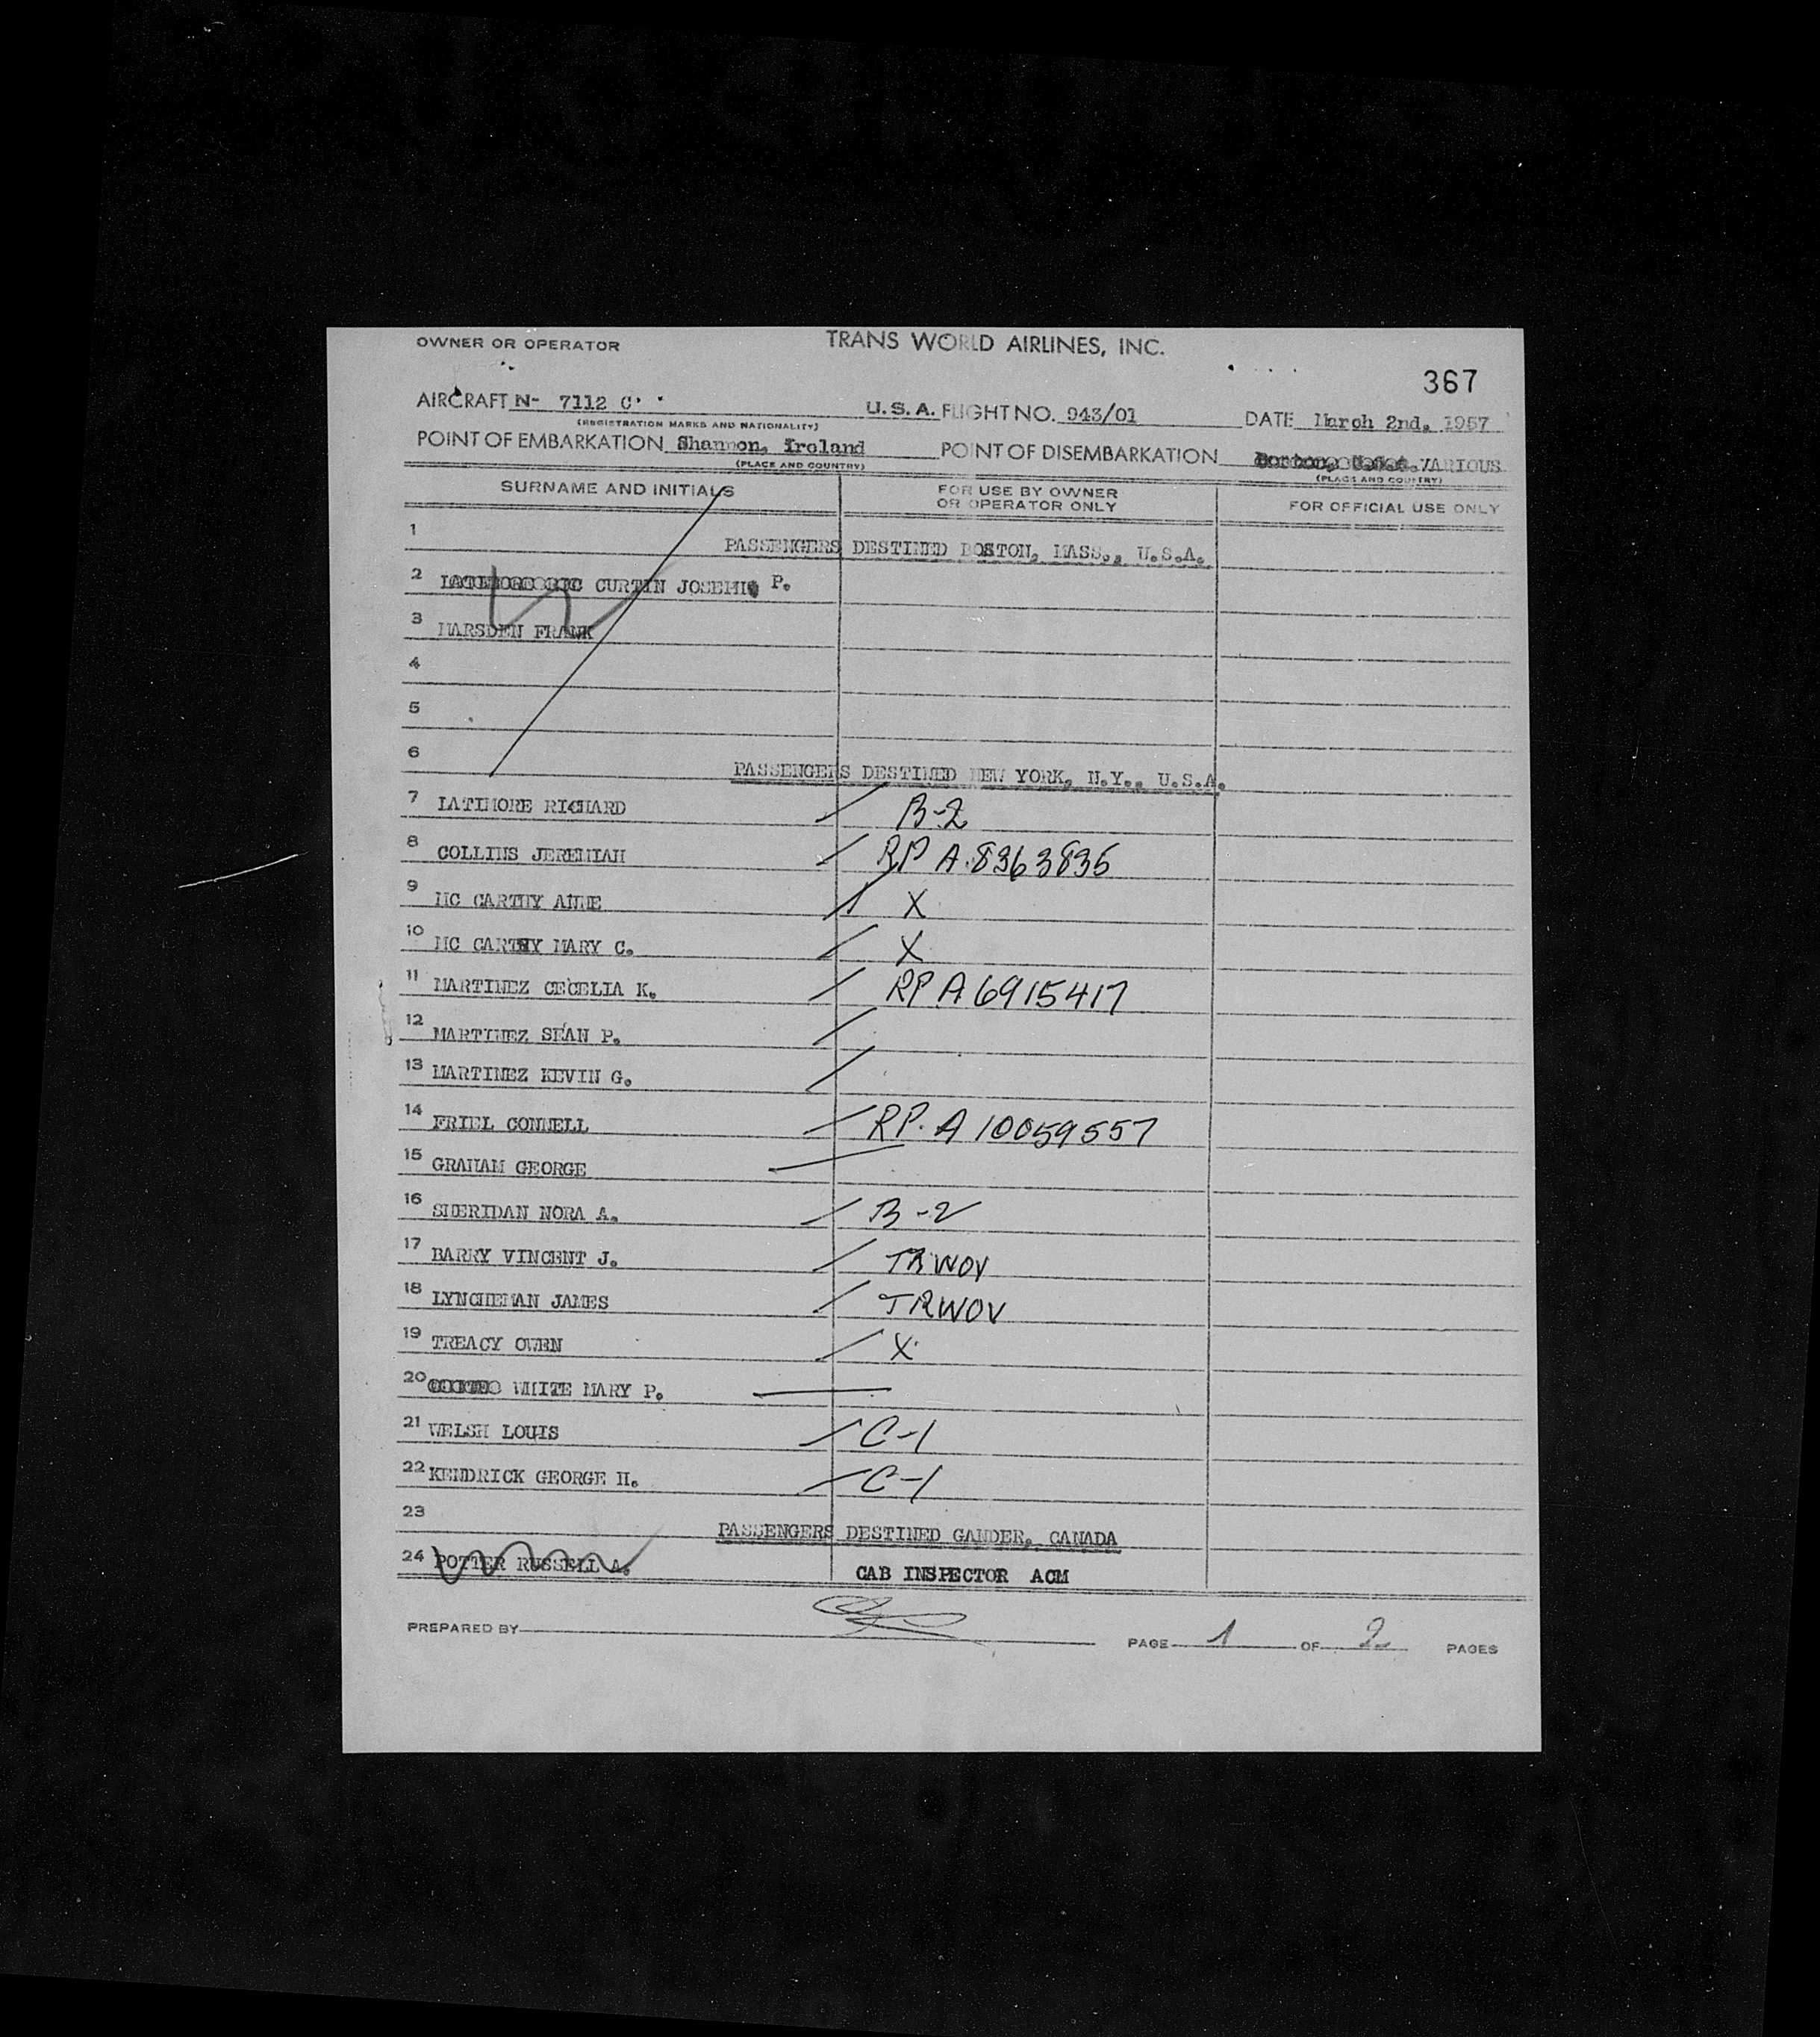 OWNER OR OPERATOR TRANS WORLD AIRLINES, INC.
367
AIRCRAFT N- 7112 C U.S.A. FLIGHT NO. 943/01 DATE March 2nd, 1957
(REGISTRATION MARKS AND NATIONALITY)
POINT OF EMBARKATION Shannon, Ireland POINT OF DISEMBARKATION VARIOUS
(PLACE AND COUNTRY) (PLACE AND COUNTRY)
SURNAME AND INITIALS FOR USE BY OWNER OR OPERATOR ONLY FOR OFFICIAL USE ONLY
1 PASSENGERS DESTINED BOSTON, MASS., U.S.A.
2 CURTIN JOSEPH P.
3 MARSDEN FRANK
4
5
6 PASSENGERS DESTINED NEW YORK, N.Y., U.S.A.
7 LATIMORE RICHARD B-2
8 COLLINS JEREMIAH RP A.8363835
9 MC CARTHY ANNE X
10 MC CARTHY MARY C. X
11 MARTINEZ CECELIA K. RP A 6915417
12 MARTINEZ SEAN P.
13 MARTINEZ KEVIN G.
14 FRIEL CONNELL RP. A 10059557
15 GRAHAM GEORGE
16 SHERIDAN NORA A. B-2
17 BARRY VINCENT J. TRWOV
18 LYNCHEHAN JAMES TRWOV
19 TREACY OWEN X
20 WHITE MARY P.
21 WELSH LOUIS C-1
22 KENDRICK GEORGE H. C-1
23 PASSENGERS DESTINED GANDER, CANADA
24 POTTER RUSSELL A. CAB INSPECTOR ACM
PREPARED BY PAGE 1 OF 2 PAGES